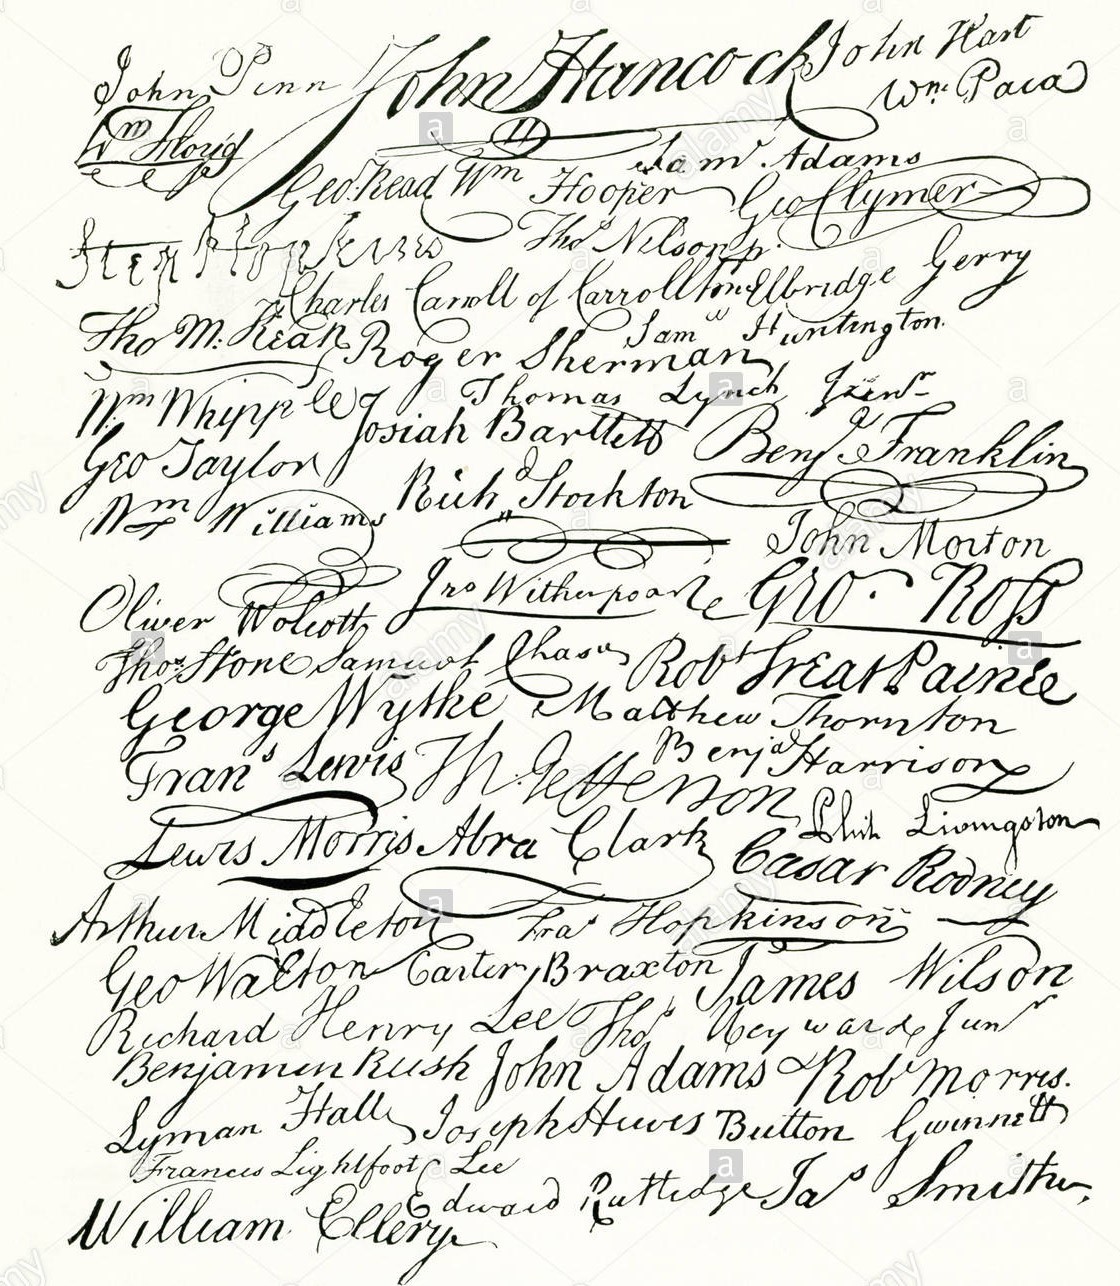 John Penn John Hancock John Hart
Wm Floyd Wm. Paca
Geo. Read Wm Hooper Sam Adams
Geo Clymer
Step Hopkins Thos Nelson jr.
Charles Carroll of Carrollton Elbridge Gerry
Tho M. Kean Roger Sherman Saml Huntington
Wm Whipple Thomas Lynch Junr
Josiah Bartlett Benj Franklin
Geo Taylor Richd Stockton
Wm Williams John Morton
Oliver Wolcott Jno Witherspoon Geo. Ross
Thos Stone Samuel Chase Robt Treat Paine
George Wythe Matthew Thornton
Frans Lewis Th Jefferson Benja Harrison
Lewis Morris Abra Clark Phil Livingston
Caesar Rodney
Arthur Middleton Fras Hopkinson
Geo Walton Carter Braxton James Wilson
Richard Henry Lee Thos Heyward Junr
Benjamin Rush John Adams Robt Morris.
Lyman Hall Joseph Hewes Button Gwinnett
Francis Lightfoot Lee
William Ellery Edward Rutledge Jas Smith